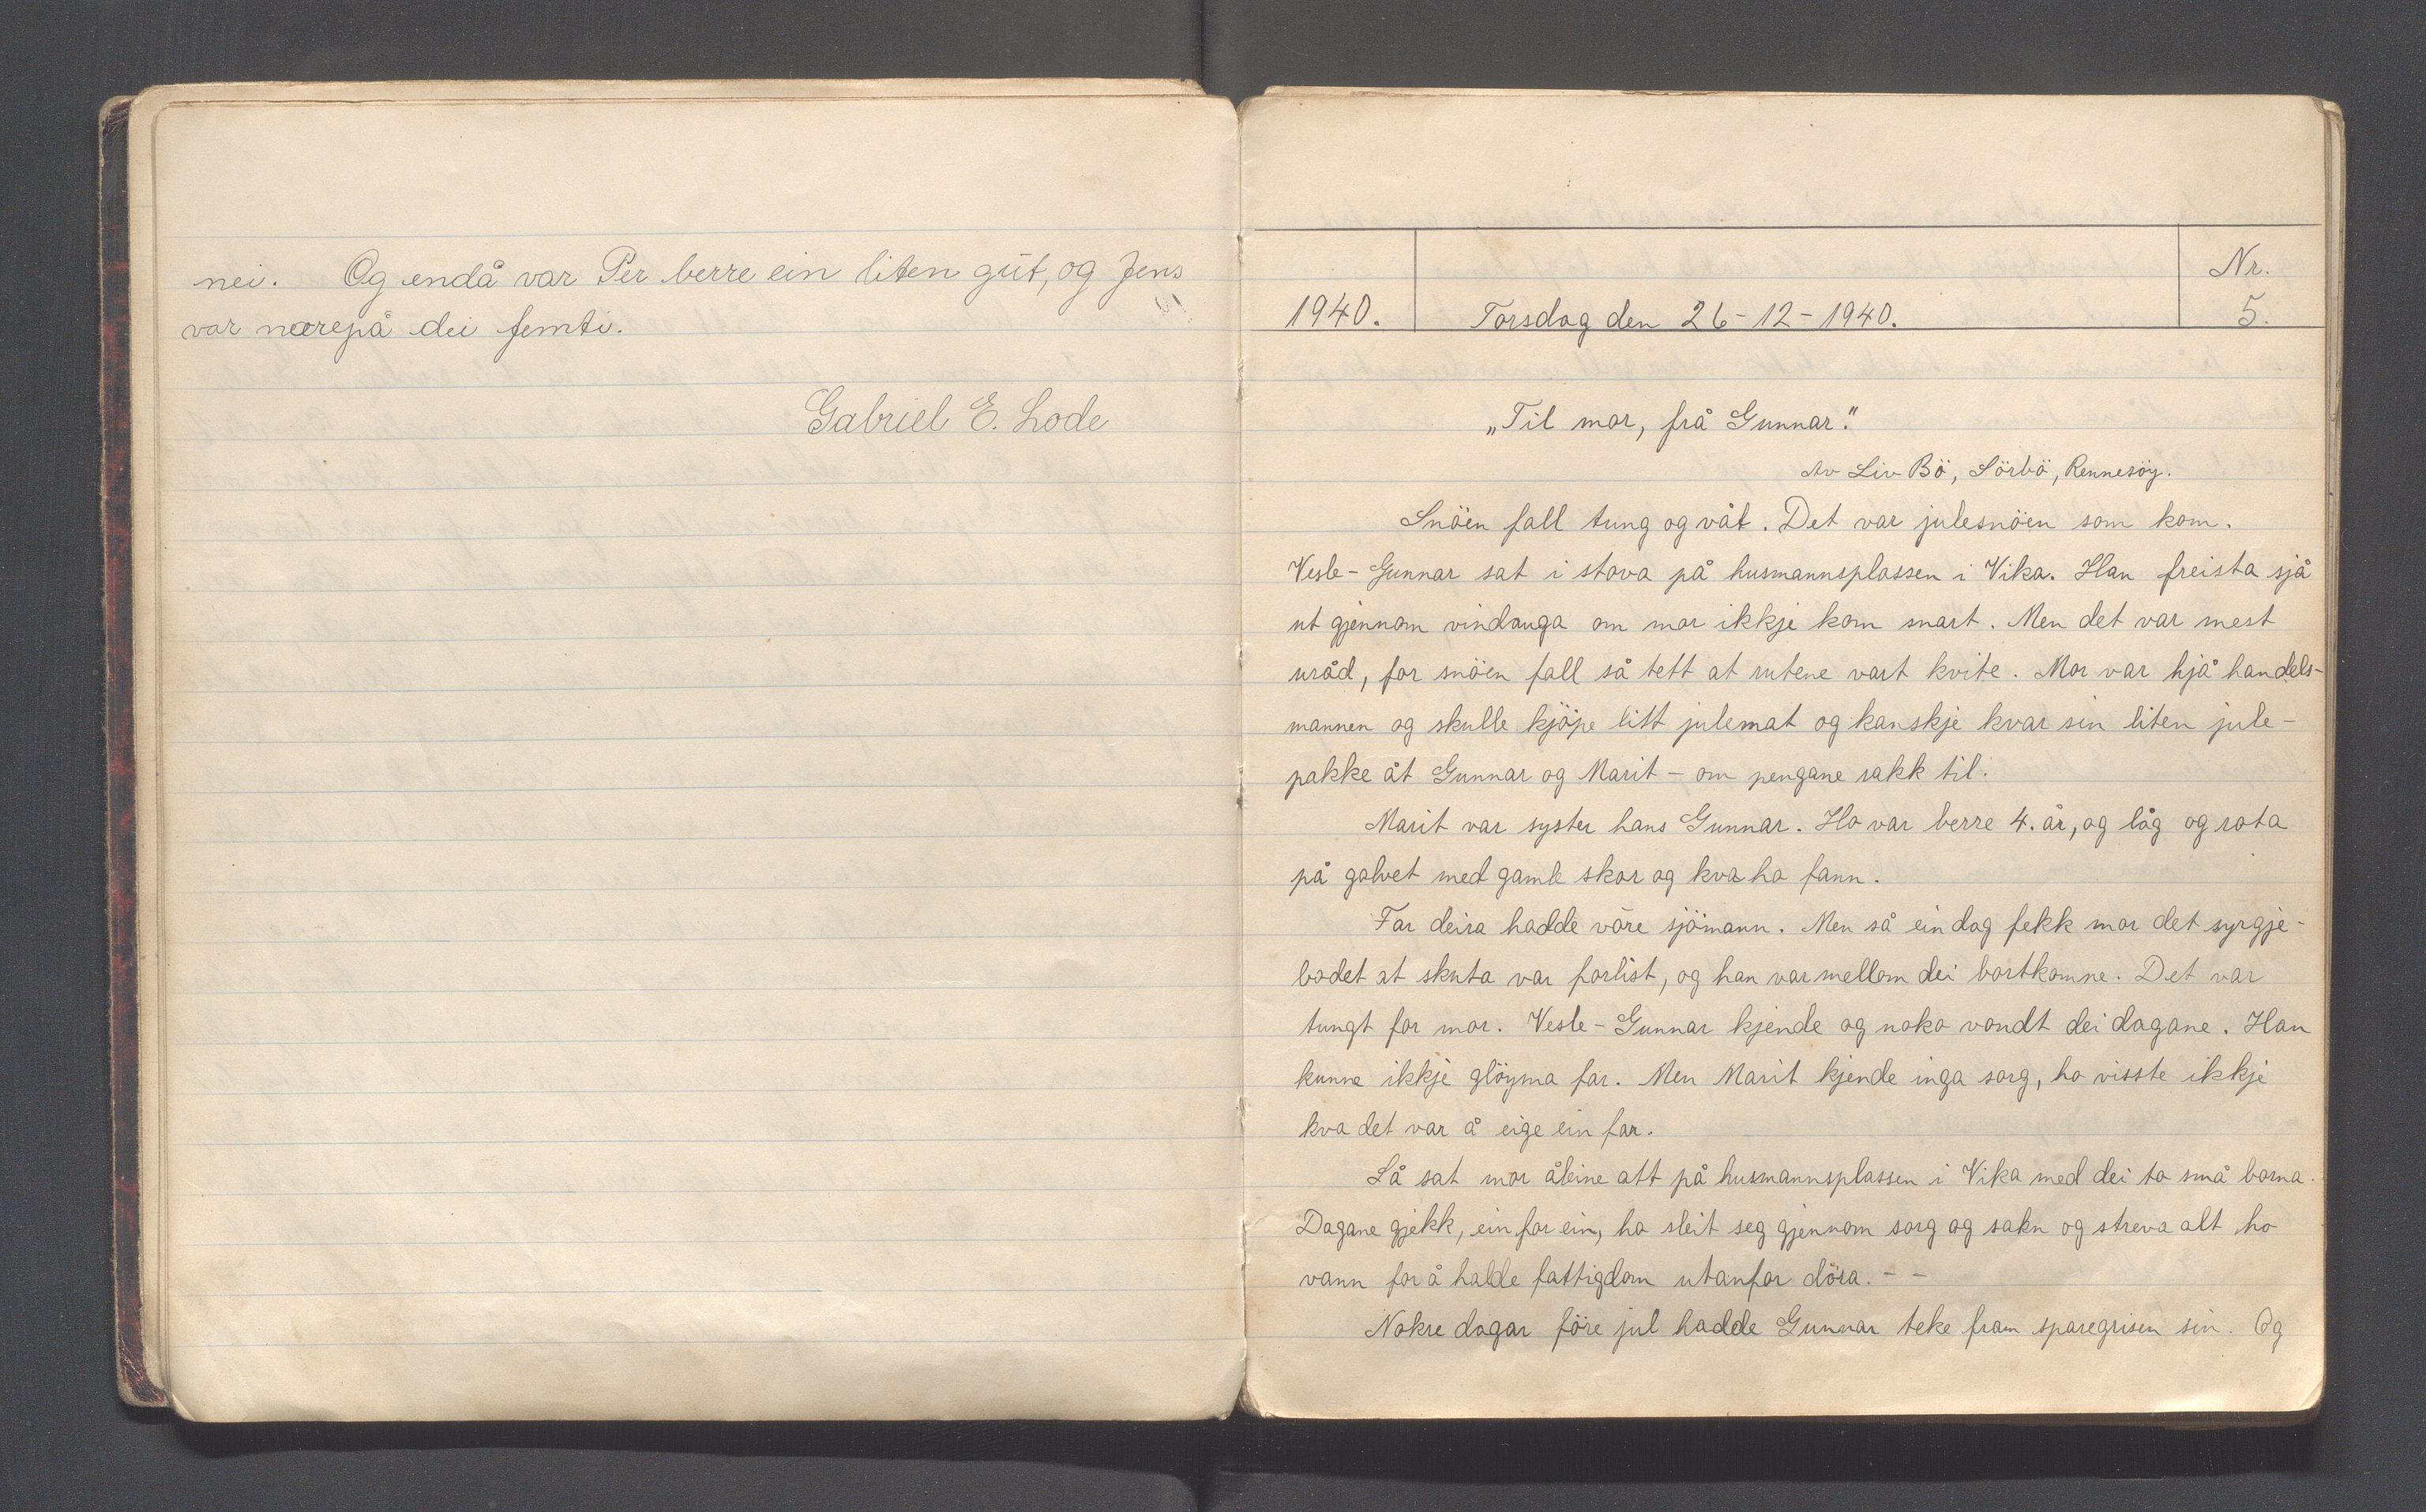 nei. Og endå var Per berre ein liten gut, og Jens
var nærepå dei femti.
Gabriel E. Lode
1940. Torsdag den 26-12-1940. Nr. 5.
„Til mor, frå Gunnar."
Av Liv Bö, Sörbö, Rennesöy.
Snöen fall tung og våt. Det var julesnöen som kom.
Vesle-Gunnar sat i stova på husmannsplassen i Vika. Han freista sjå
ut gjennom vindauga om mor ikkje kom snart. Men det var mest
uråd, for snöen fall så tett at rutene vart kvite. Mor var hjå handels-
mannen og skulle kjöpe litt julemat og kanskje kvar sin liten jule-
pakke åt Gunnar og Marit - om pengane rakk til.
Marit var syster hans Gunnar. Ho var berre 4. år, og låg og rota
på golvet med gamle skor og kva ho fann.
Far deira hadde vöre sjömann. Men så ein dag fekk mor det syrgje-
bodet at skuta var forlist, og han var mellom dei bortkomne. Det var
tungt for mor. Vesle-Gunnar kjende og noko vondt dei dagane. Han
kunne ikkje glöyma far. Men Marit kjende inga sorg, ho visste ikkje
kva det var å eige ein far.
Så sat mor åleine att på husmannsplassen i Vika med dei to små borna.
Dagane gjekk, ein for ein, ho sleit seg gjennom sorg og sakn og streva alt ho
vann for å halde fattigdom utanfor döra. - -
Nokre dagar före jul hadde Gunnar teke fram sparegrisen sin. Og